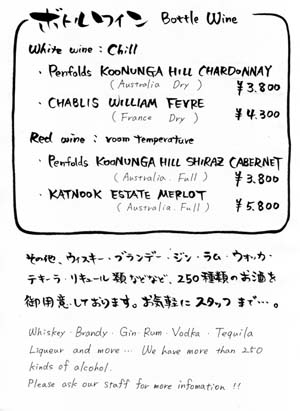 ボトルワイン Bottle Wine
White wine : Chill
・Penfolds KOONUNGA HILL CHARDONNAY
(Australia Dry) ¥3.800
・CHABLIS WILLIAM FEVRE
(France Dry) ¥4.300
Red wine : room temperature
・Penfolds KOONUNGA HILL SHIRAZ CABERNET
(Australia. Full) ¥3.800
・KATNOOK ESTATE MERLOT
(Australia. Full) ¥5.800
その他、ウィスキー・ブランデー・ジン・ラム・ウォッカ・
テキーラ・リキュール類などなど、250種類のお酒を
御用意しております。お気軽にスタッフまで…。
Whiskey・Brandy・Gin・Rum・Vodka・Tequila
Liqueur and more … We have more than 250
kinds of alcohol.
Please ask our staff for more infomation !!